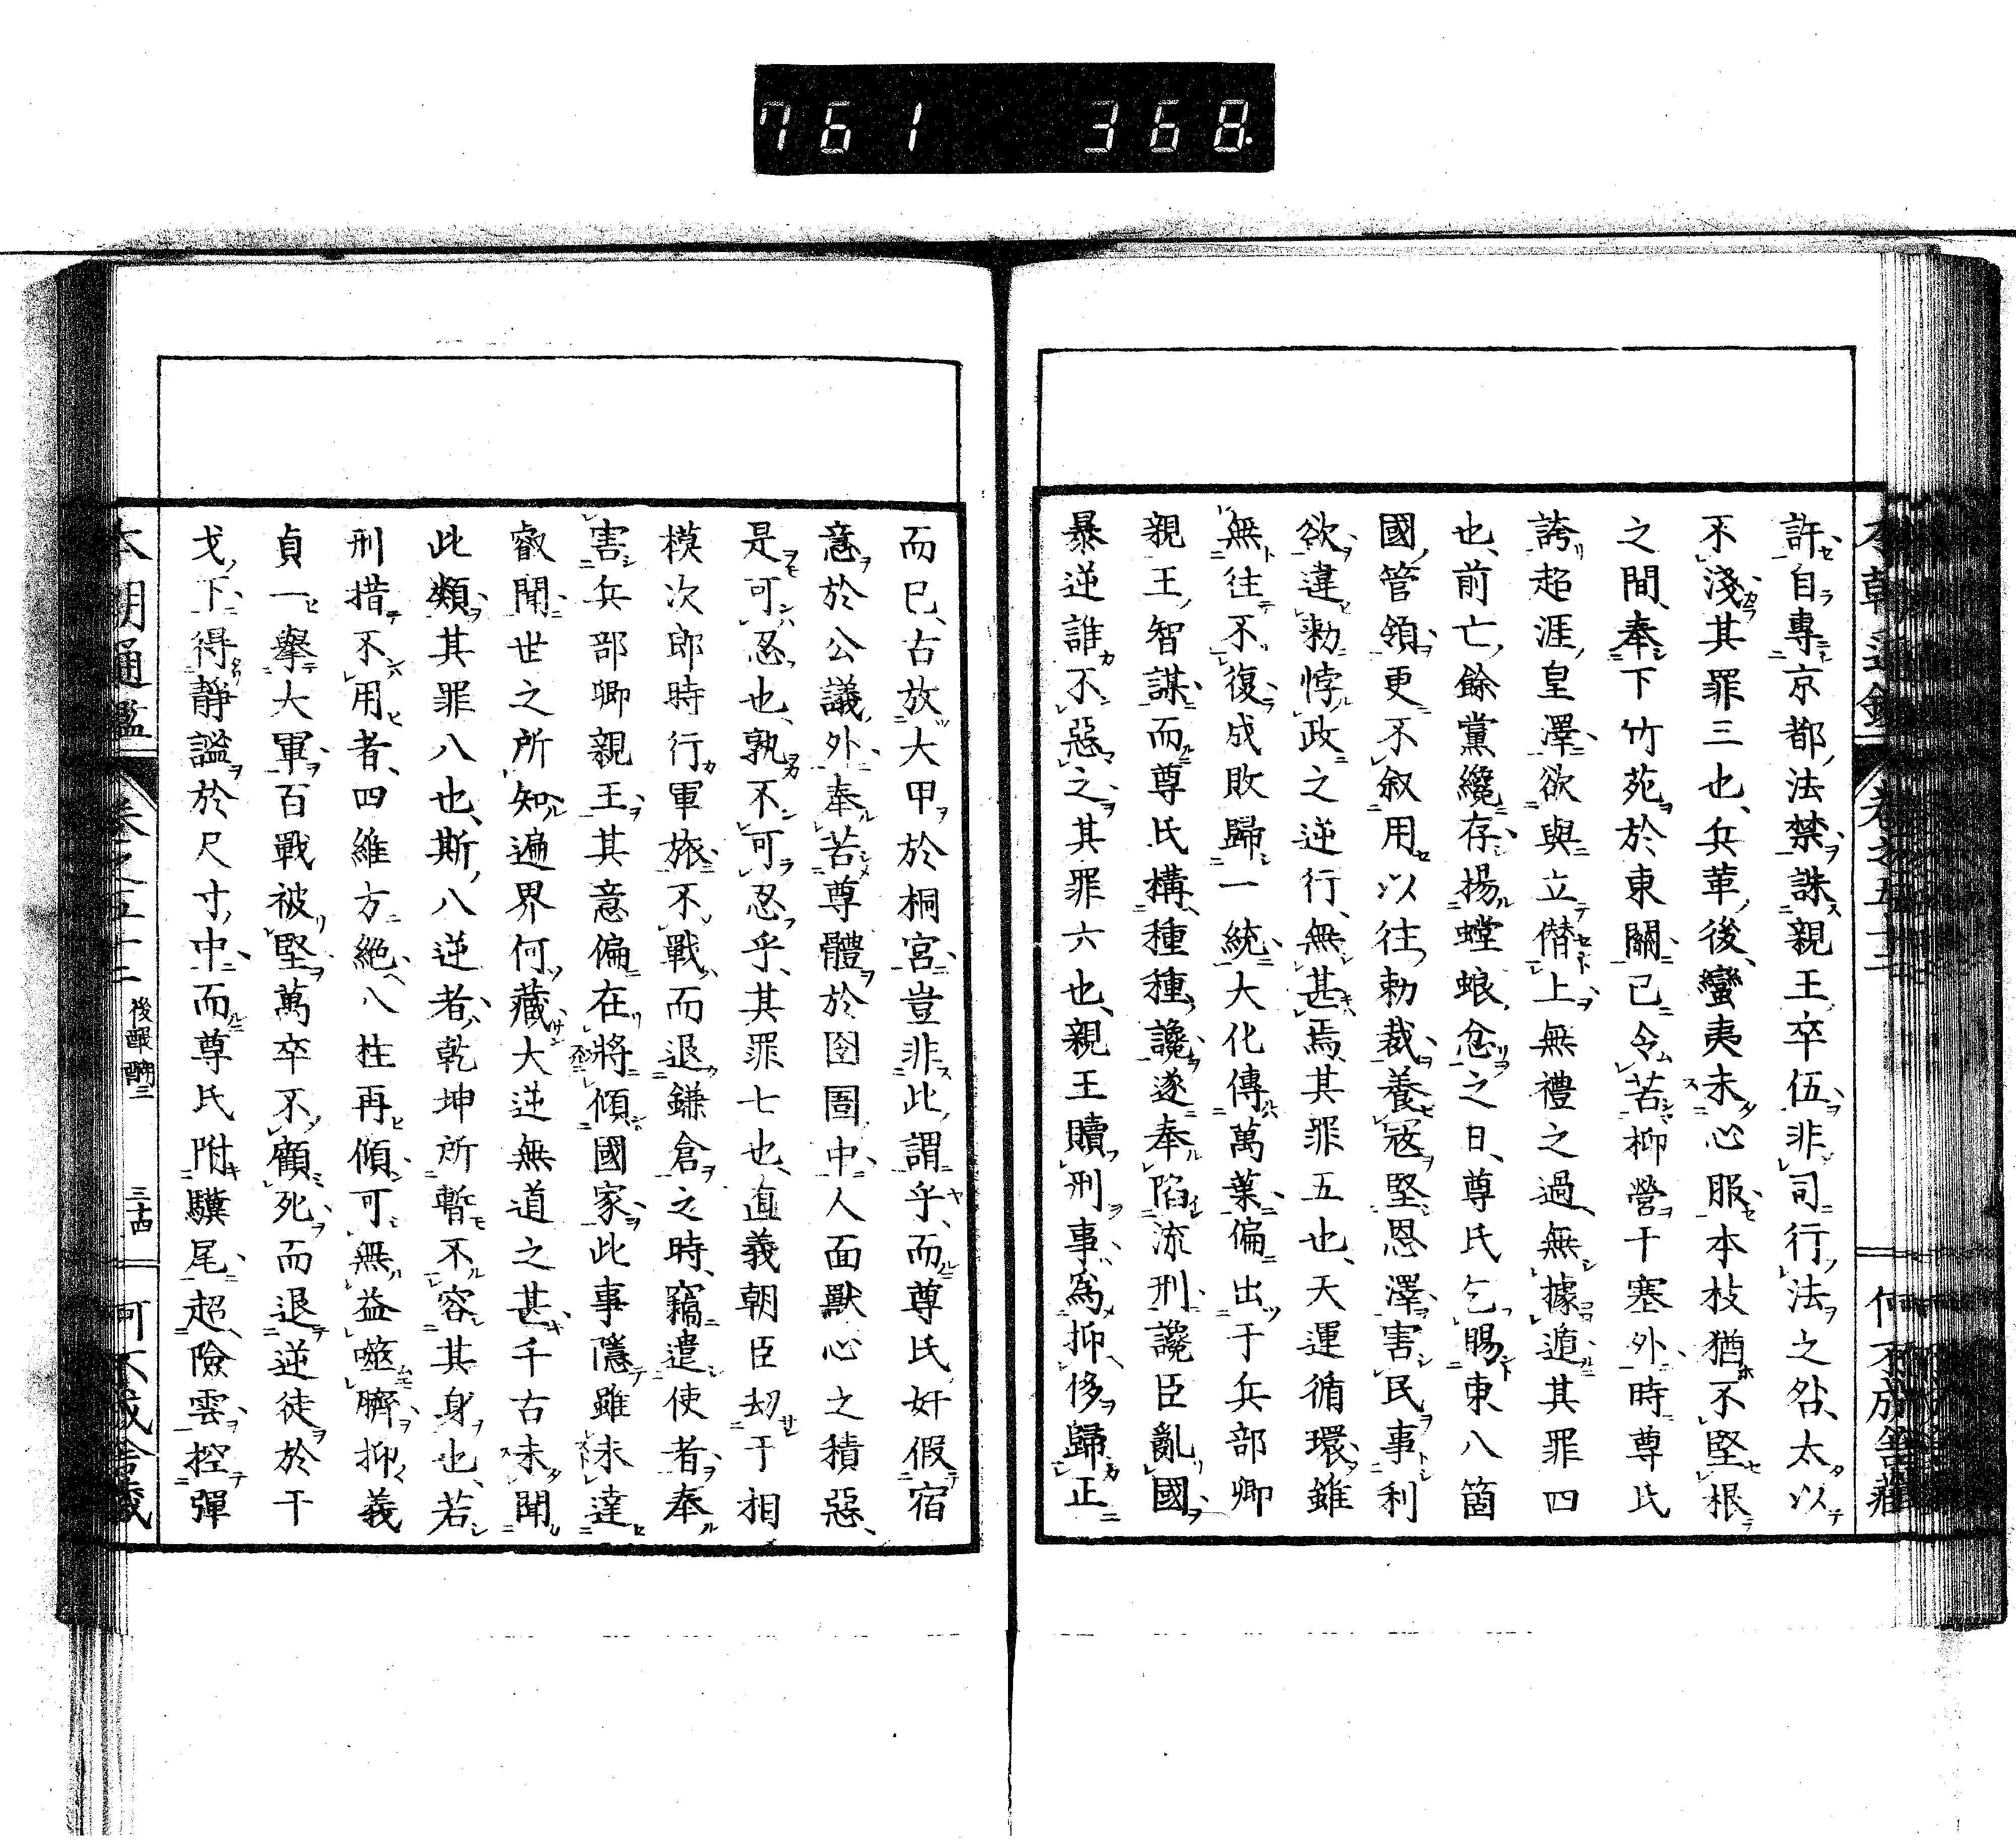 761 368.
許自專京都法禁誅親王卒伍非司行法之咎太以
不淺其罪三也、兵革後蠻夷未心服本枝猶不堅根
之間奉下竹苑於東關已令苦柳營于塞外時尊氏
誇超涯皇澤欲與立僭上無禮之過無據遁其罪四
也、前亡餘黨纔存揚螳蜋忿之日、尊氏乞賜東八箇
國管領更不叙用以往勅裁養寇堅恩澤害民事利
欲違勅悖政之逆行無甚焉其罪五也、天運循環雖
無往不復成敗歸一統大化傳萬葉偏出于兵部卿
親王智謀而尊氏構種種讒遂奉陷流刑讒臣亂國
暴逆誰不惡之其罪六也、親王贖刑事爲抑侈歸正
而已、古放大甲於桐宮豈非此謂乎、而尊氏奸假宿
意於公議外奉苦尊體於囹圄中人面獸心之積惡、
是可忍也、孰不可忍乎、其罪七也、直義朝臣劫于相
模次郎時行軍旅不戰而退鎌倉之時、竊遣使者奉
害兵部卿親王其意偏在將傾國家此事隱雖未達
叡聞世之所知遍界何藏大逆無道之甚千古未聞
此類其罪八也、斯八逆者乾坤所暫不容其身也、若
刑措不用者、四維方絶八柱再傾可無益噬臍抑義
貞一擧大軍百戰被堅萬卒不顧死而退逆徒於干
戈下得靜謐於尺寸中而尊氏附驥尾超險雲控彈
本朝通鑑 卷之五十二 後醍醐三 三十四